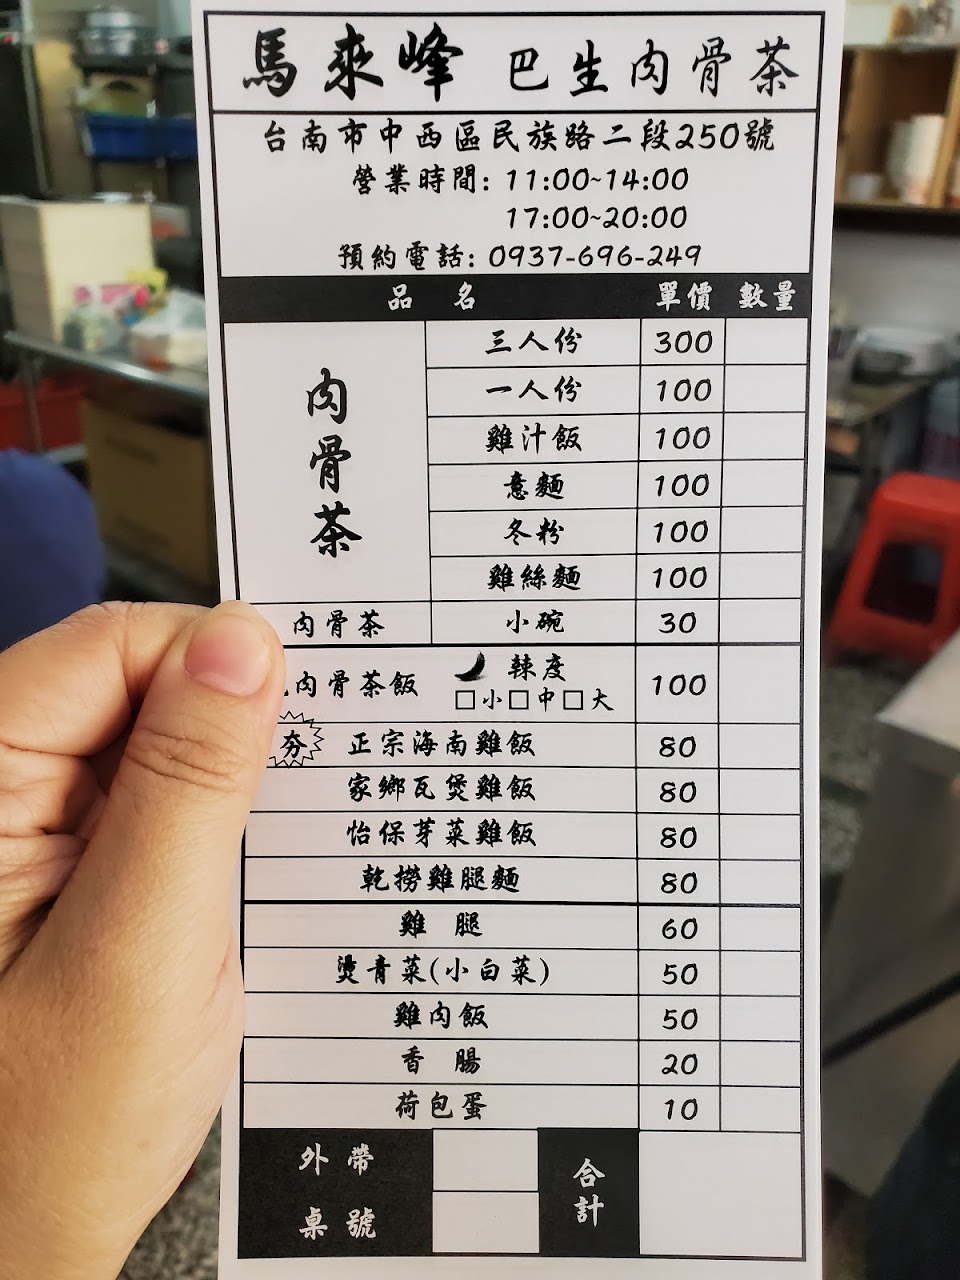 馬來峰 巴生肉骨茶
台南市中西區民族路二段250號
營業時間: 11:00~14:00
17:00~20:00
預約電話: 0937-696-249
品 名 單價 數量
肉骨茶
三人份 300
一人份 100
雞汁飯 100
意麵 100
冬粉 100
雞絲麵 100
肉骨茶 小碗 30
肉骨茶飯 辣度 100
□小□中□大
夯 正宗海南雞飯 80
家鄉瓦煲雞飯 80
怡保芽菜雞飯 80
乾撈雞腿麵 80
雞 腿 60
燙青菜(小白菜) 50
雞肉飯 50
香 腸 20
荷包蛋 10
外 帶 合計
桌 號